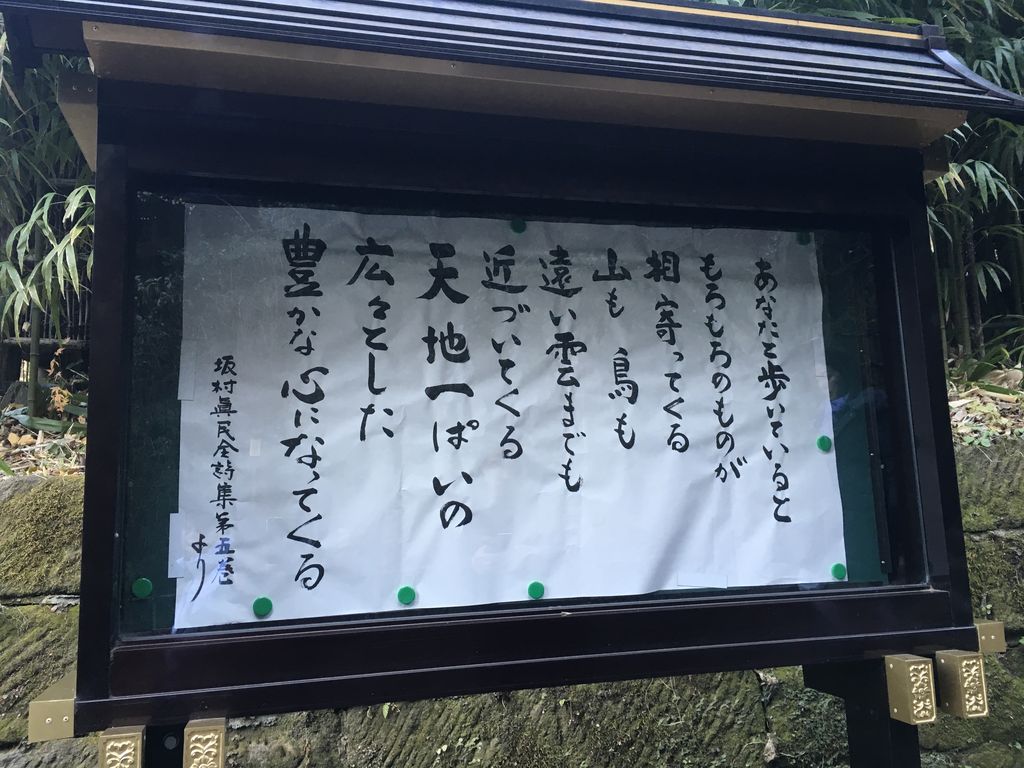 あなたと歩いていると
もろもろのものが
相寄ってくる
山も 鳥も
遠い雲までも
近づいてくる
天地一ぱいの
広々とした
豊かな心になってくる
坂村眞民全詩集第五巻
より